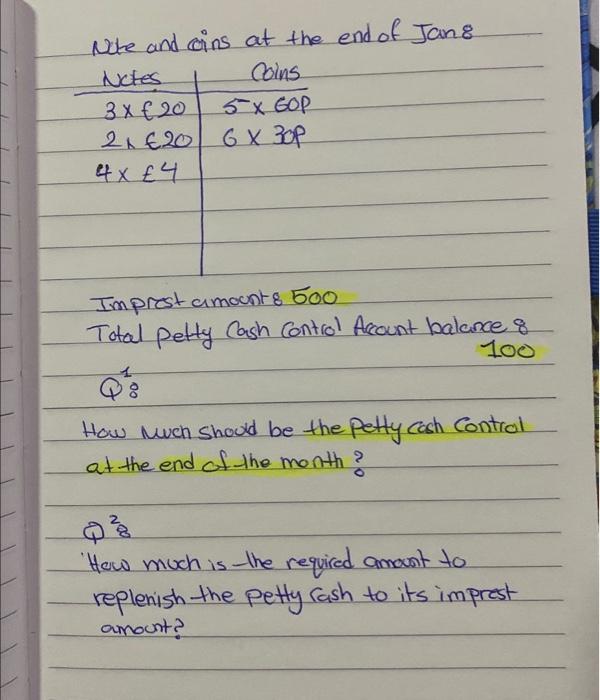 Note and coins at the end of Jan:
Notes Coins
3 x £20 5 x 60P
2 x £20 6 x 30P
4 x £4
Imprest amount: 500
Total Petty Cash Control Acount balance:
100
Q1:
How Much should be the Petty cash Control
at the end of the month?
Q2:
How much is the required amount to
replenish the Petty Cash to its imprest
amount?